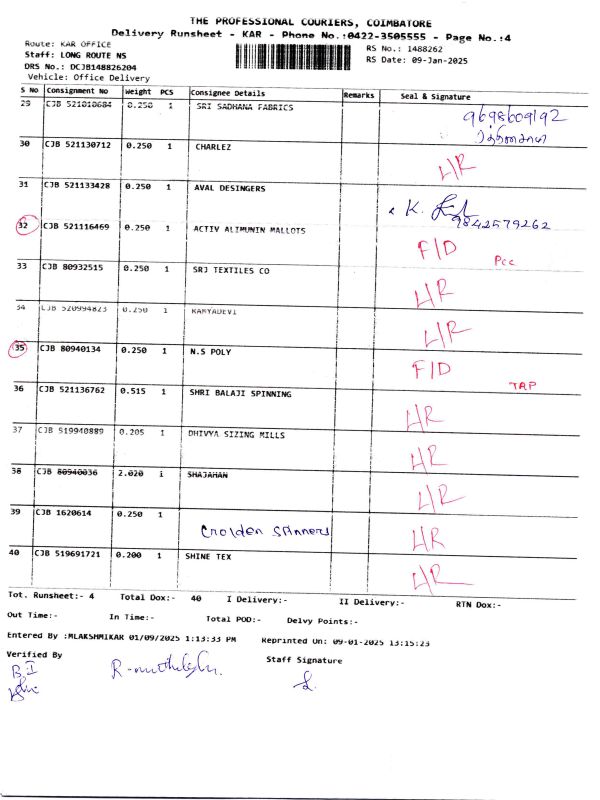 THE PROFESSIONAL COURIERS, COIMBATORE
Delivery Runsheet - KAR - Phone No.:0422-3505555 - Page No.:4
Route: KAR OFFICE
Staff: LONG ROUTE NS
DRS No.: DCJB148826204
Vehicle: Office Delivery
RS No.: 1488262
RS Date: 09-Jan-2025
S No Consignment No Weight PCS Consignee Details Remarks Seal & Signature
29 CJB 521010684 0.250 1 SRI SADHANA FABRICS 9698609192
30 CJB 521130712 0.250 1 CHARLEZ H/R
31 CJB 521133428 0.250 1 AVAL DESINGERS K.
9842579262
32 CJB 521116469 0.250 1 ACTIV ALIMUNIN MALLOTS F/D Pcc
33 CJB 80932515 0.250 1 SRJ TEXTILES CO HR
34 CJB 520994823 0.250 1 KANYADEVI H/R
35 CJB 80940134 0.250 1 N.S POLY F/D TAP
36 CJB 521136762 0.515 1 SHRI BALAJI SPINNING HR
37 CJB 519940889 0.205 1 DHIVYA SIZING MILLS HR
38 CJB 80940036 2.020 1 SHAJAHAN HR
39 CJB 1620614 0.250 1 Golden Spinners HR
40 CJB 519691721 0.200 1 SHINE TEX HR
Tot. Runsheet:- 4 Total Dox:- 40 I Delivery:- II Delivery:- RTN Dox:-
Out Time:- In Time:- Total POD:- Delvy Points:-
Entered By :MLAKSHMIKAR 01/09/2025 1:13:33 PM Reprinted On: 09-01-2025 13:15:23
Verified By Staff Signature
B.I